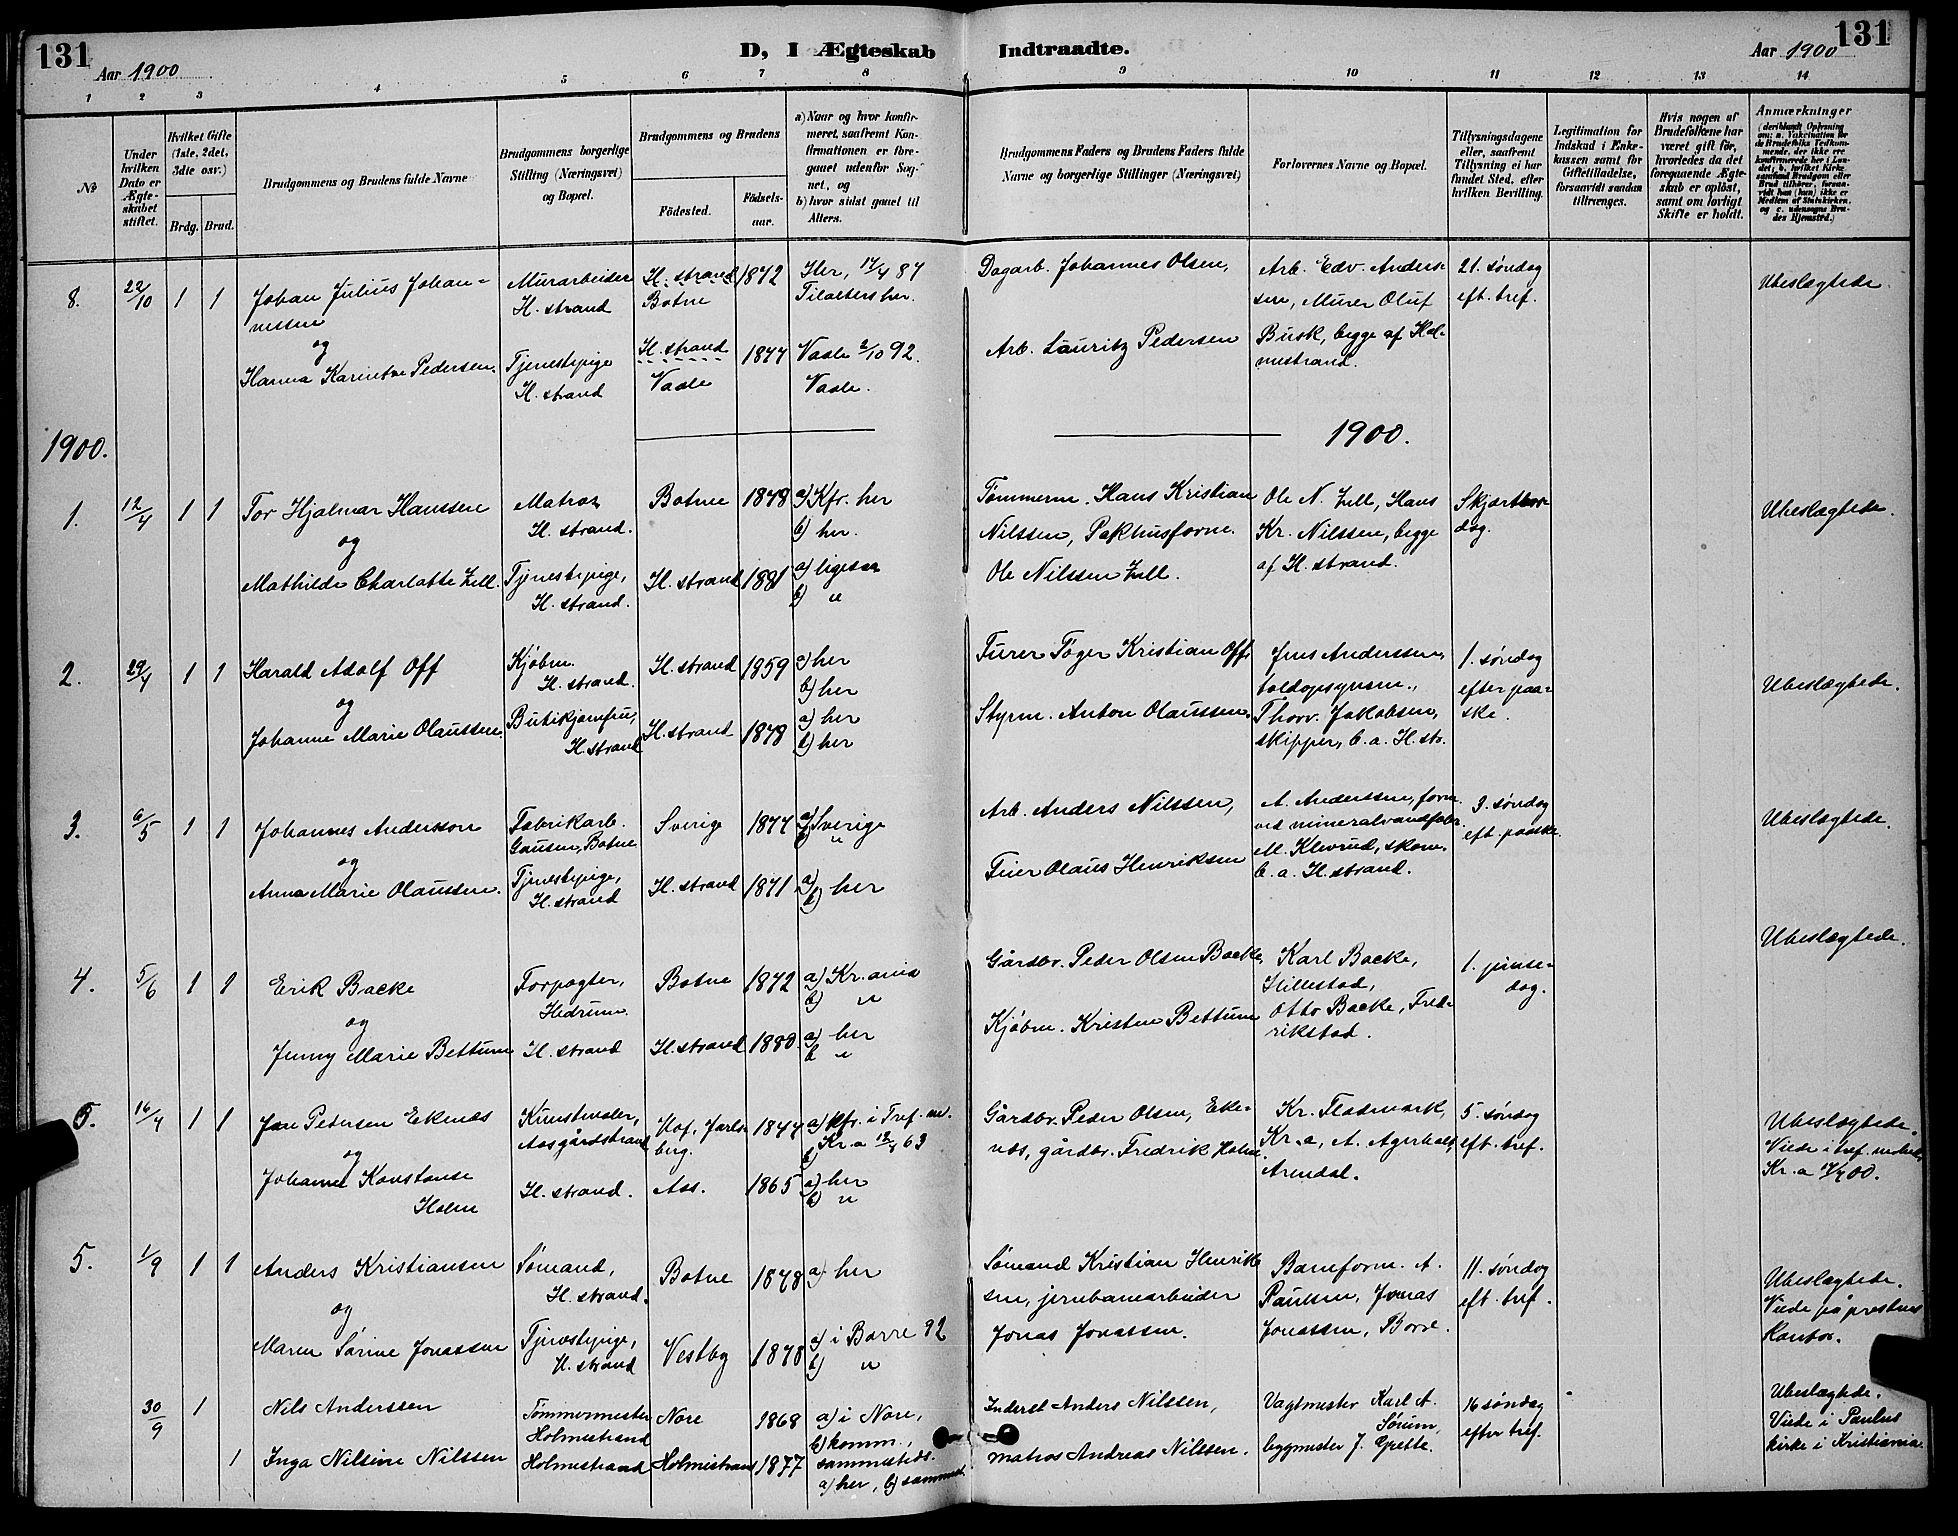 131
Aar 1900
D, I Ægteskab Indtraadte.
Aar 1900
131
1 2 3 4 5 6 7 8 9 10 11 12 13 14
No
Under hvilken Dato er Ægteskabet stiftet.
Hvilket Gifte (1ste, 2det, 3die osv.)
Brdg. Brud.
Brudgommens og Brudens fulde Navne
Brudgommens borgerlige Stilling (Næringsvei) og Bopæl.
Brudgommens og Brudens
Fødested.
Fødselsaar.
a) Naar og hvor konfirmeret, saafremt Konfirmationen er foregaaet udenfor Sognet, og
b) hvor sidst gaaet til Alters.
Brudgommens Faders og Brudens Faders fulde Navne og borgerlige Stillinger (Næringsvei)
Forlovernes Navne og Bopæl.
Tillysningsdagene eller, saafremt Tillysning ei har fundet Sted, efter hvilken Bevilling.
Legitimation for Indskud i Enkekassen samt for Giftetilladelse, forsaavidt saadan tiltrænges.
Hvis nogen af Brudefolkene har været gift før, hvorledes da det foregaaende Ægteskab er opløst, samt om lovligt Skifte er holdt.
Anmærkninger
(deriblandt Oplysning om: a. Vakcination for de Brudefolks Vedkommende, der ikke ere konfirmerede her i Landet, b. hvilket Kirkesamfund Brudgom eller Brud tilhører, forsaavidt han (hun) ikke er Medlem af Statskirken, og c. udensogns Brudes Hjemsted.)
8. 22/10 1 1
Johan Julius Johannessen
og
Hanna Karintve Pedersen.
Murarbeider
H. strand
Tjenestepige
H. strand
H. strand
Botne
1872
H. strand
Vaale
1877
Her, 17/4 87
Tilalters her.
Vaale 2/10 92.
Vaale.
Dagarb. Johannes Olsen,
Arb. Lauritz Pedersen
Arb. Edv. Anderssen, Murer Oluf
Busk, begge af Holmestrand.
21. søndag
eft. tref.
Ubeslægtede.
1900.
1900.
1. 12/4 1 1
Tor Hjalmar Hanssen
og
Mathilde Charlotte Zell.
Matros
H. strand.
Tjenestepige,
H. strand.
Botne 1878
H. strand 1881
a) Kfr. her
b) her.
a) ligesaa
b) "
Tømmerm. Hans Kristian
Nilssen, Pakhusform.
Ole Nilssen Zell.
Ole N. Zell, Hans
Kr. Nilssen, begge
af H. strand.
Skjærtorsdag.
Ubeslægtede.
2. 29/4 1 1
Harald Adolf Off
og
Johanne Marie Olaussen.
Kjøbm.
H. strand.
Butikjomfru,
H. strand
H. strand 1859
H. strand 1878
a) her
b) her
a) her
b) her
Furer Tøger Kristian Off.
Styrm. Anton Olaussen.
Jens Anderssen,
toldopsynsm.,
Thorv. Jakobsen,
skipper, b. a. H. str.
1. søndag
efter paaske.
Ubeslægtede.
3. 6/5 1 1
Johannes Andersson
og
Anna Marie Olaussen.
Fabrikarb.
Gausen, Botne
Tjenestepige,
H. strand
Sverige 1877
H. strand 1871
a) Sverige
b) "
a)
b) her
Arb. Anders Nilssen,
Feier Olaus Henriksen
A. Anderssen, form.
ved mineralvandfabr.
M. Klevrud, skom.
b. a. H. strand.
3. søndag
eft. paaske
Ubeslægtede.
4. 5/6 1 1
Erik Backe
og
Jenny Marie Bettum
Forpagter,
Hedrum
H. strand
Botne 1872
H. strand 1880
a) Kr. ania
b) "
a) her
b "
Gårdbr. Peder Olsen Backe,
Kjøbm. Kristen Bettum
Karl Backe,
Hillestad,
Otto Backe, Fredrikstad.
1. pinsedag.
Ubeslægtede.
5. 16/4 1 1
Jan Petersen Ekenæs
og
Johanne Konstanse
Holm
Kunstmaler,
Aasgårdstrand
H. strand.
Hof, Jarlsberg. 1847
Aas. 1865
a) kfr. i Tref. m.
b) Kr.a 12/4 63
a) her
b) "
Gårdbr. Peder Olsen, Ekenæs, gårdbr. Fredrik Holm.
Kr. Flodmark,
Kr.a, A. Agerholt,
Arendal.
5. søndag
eft. tref.
Ubeslægtede.
Viede i tref. menh.
Kr.a 17/7 00.
5. 1/9 1 1
Anders Kristiansen
og
Maren Sørine Jonassen
Sømand,
H. strand.
Tjenestepige,
H. strand
Botne 1878
Vestby 1878
a) her
a) i Borre 92
b) "
Sømand Kristian Henriksen, jernbanearbeider
Jonas Jonassen.
Baneform. A.
Paulsen, Jonas
Jonassen, Borre.
11. søndag
eft. tref.
Ubeslægtede.
Viede på prestens
Kontor.
30/9 1
Nils Anderssen
1 Inga Nilsine Nilssen
Tømmermester
Holmestrand
Holmestrand
Nore 1868
Holmestrand 1877
a) i Nore,
b) komm.,
sammesteds.
a) her, b) sammest
Inderst Anders Nilssen,
matros Andreas Nilssen.
Vagtmester Karl A.
Sørum,
bygmester J. Grette.
16 søndag
efter tref.
Ubeslægtede.
Viede i Paulus
kirke i Kristiania